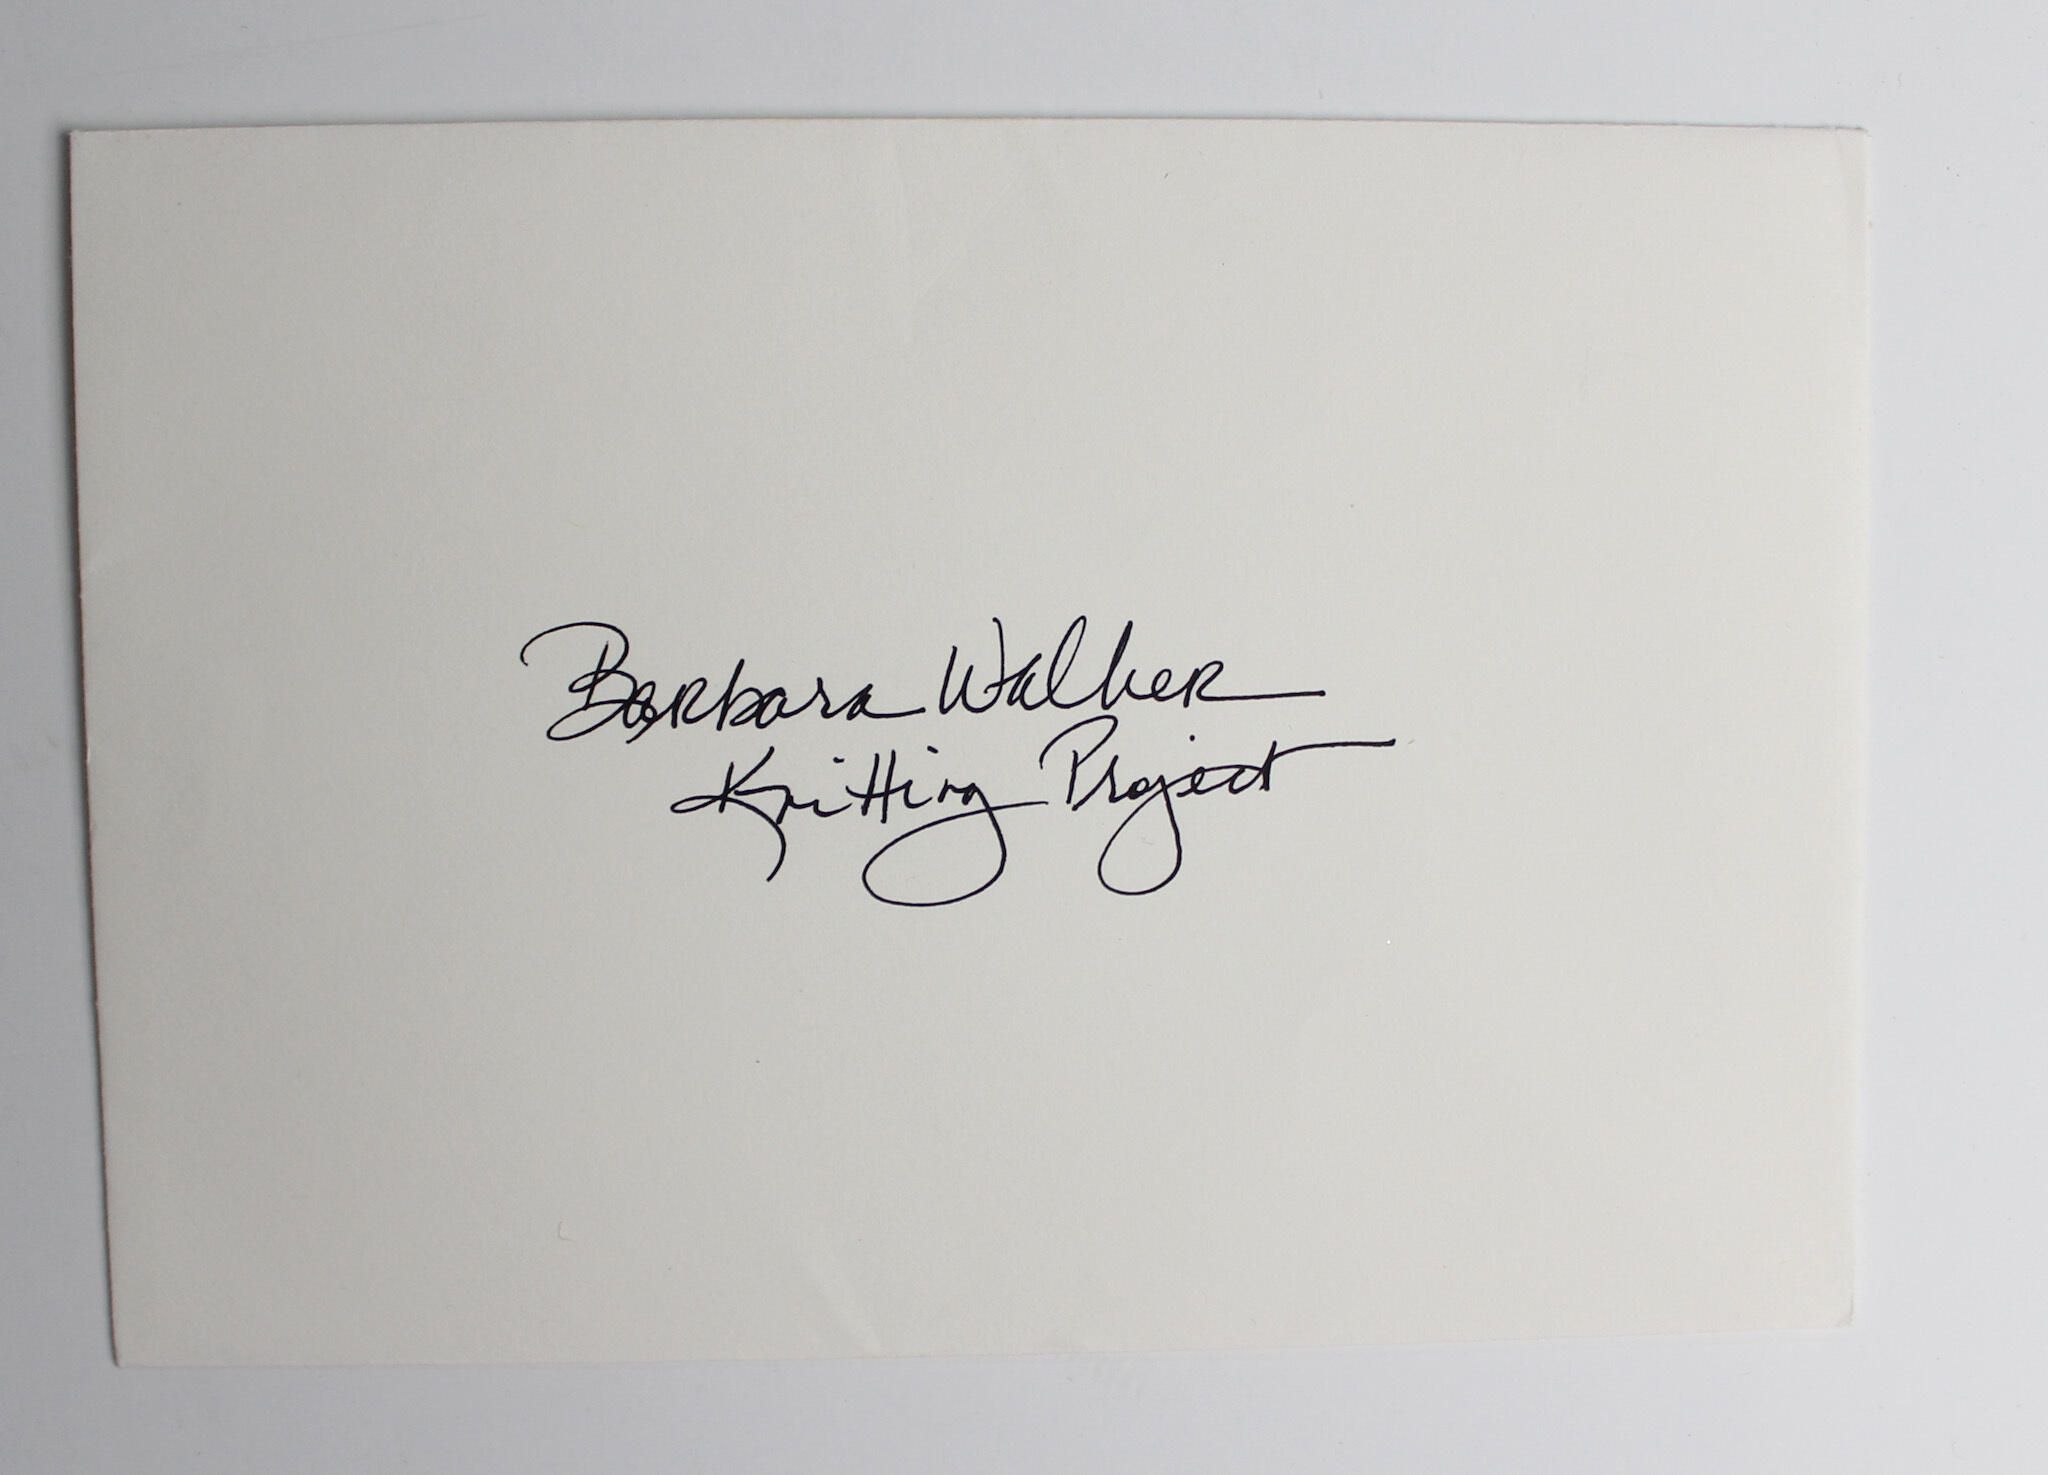 Barbara Walker
Knitting Project